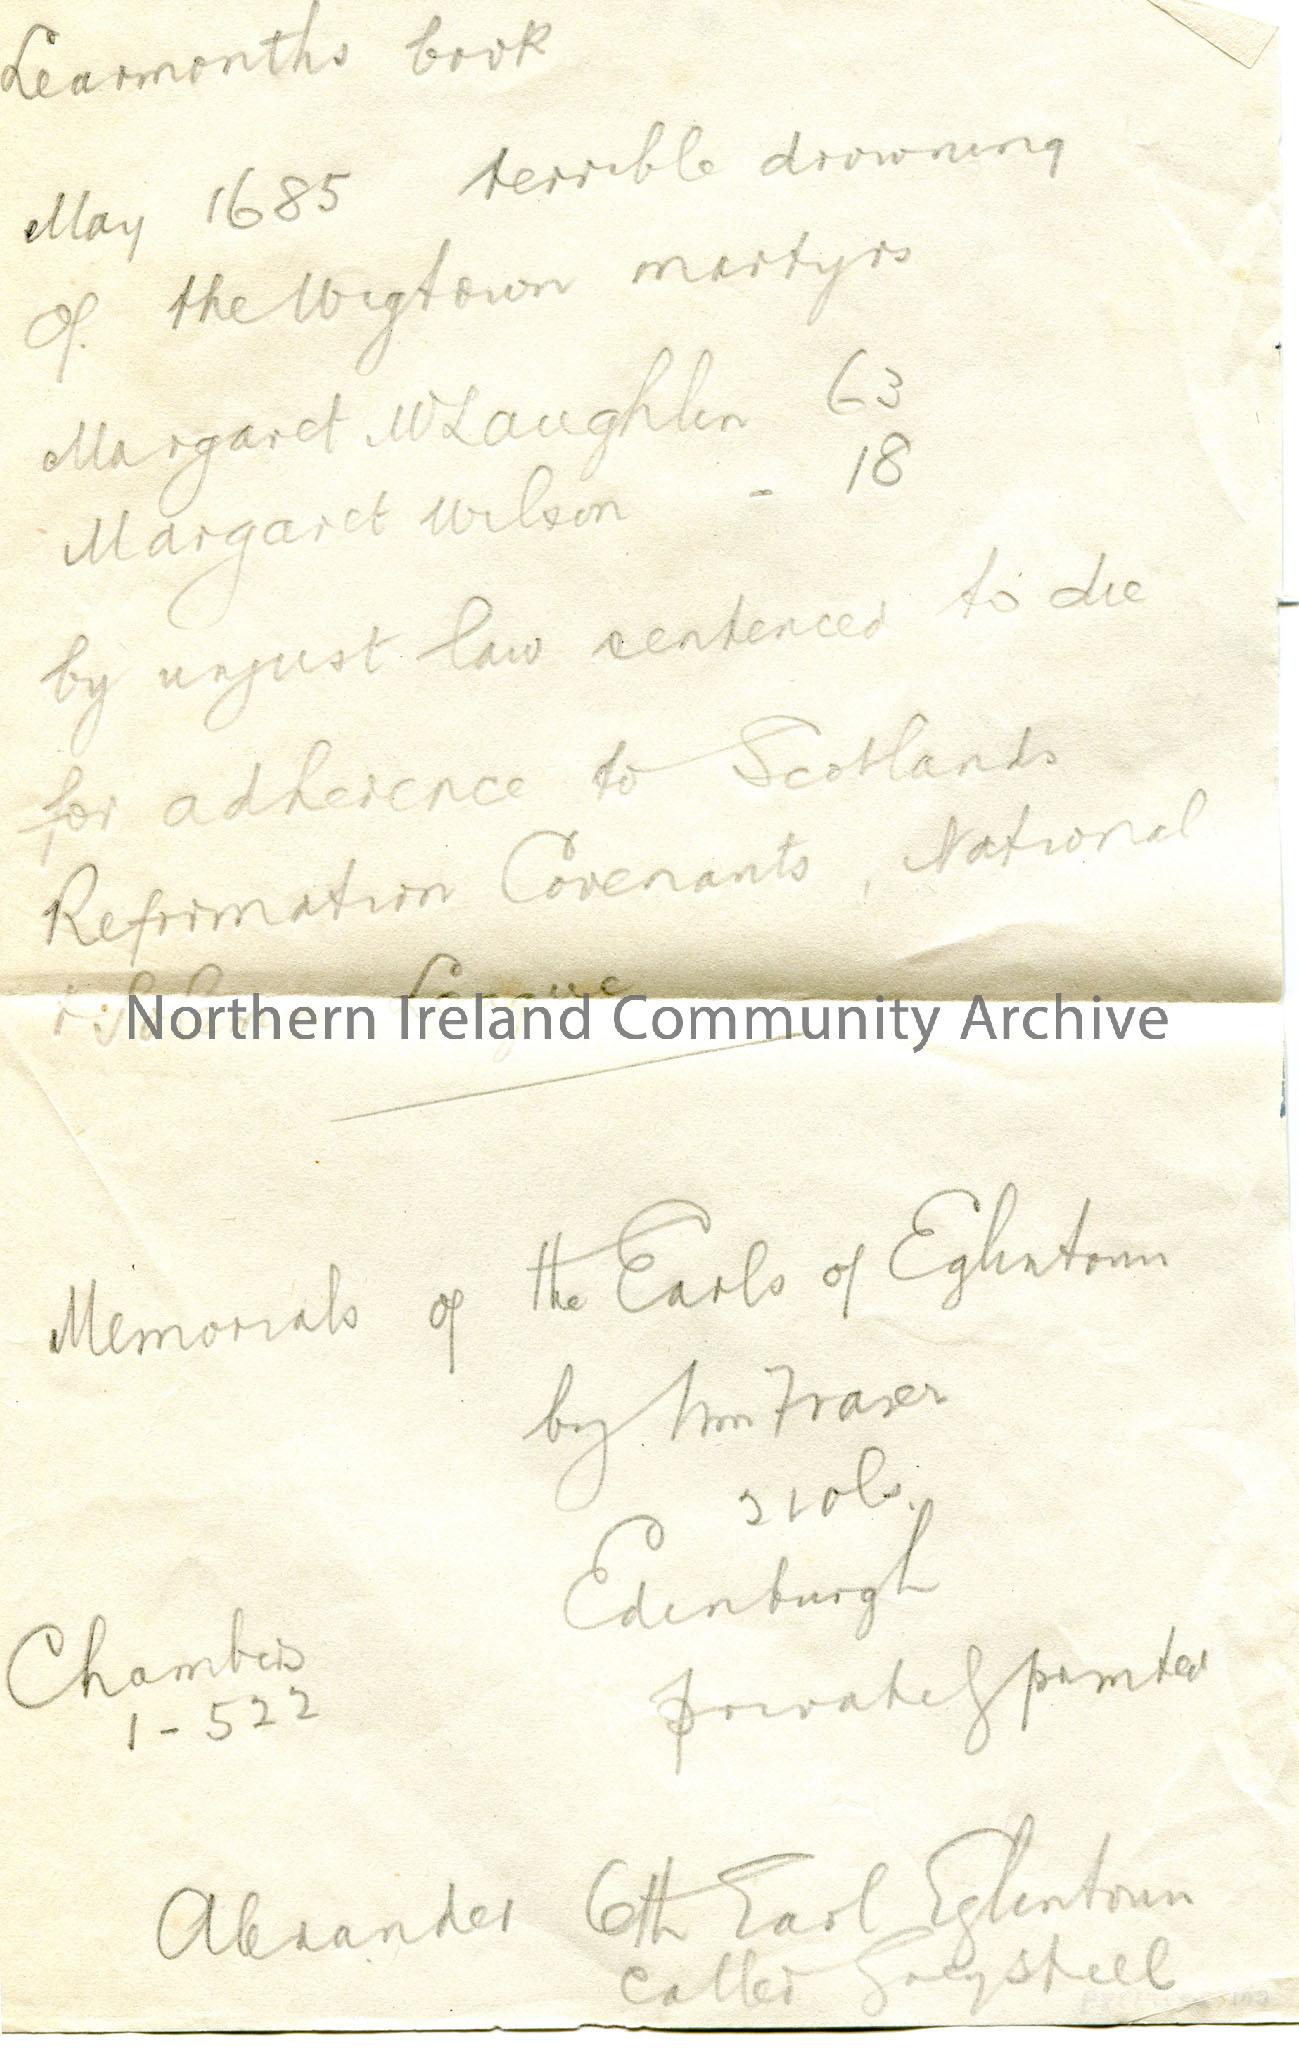 Learmonths book
May 1685 terrible drowning
of the Wigtown martyrs
Margaret McLaughlin 63
Margaret Wilson - 18
by unjust law sentenced to die
for adherence to Scotlands
Reformation Covenants, National
League
Northern Ireland Community Archive
Memorials of the Earls of Eglintoun
by Wm Fraser
2 vols.
Edinburgh
privately printed
Chambers
1-522
Alexander 6th Earl Eglintoun
called Greysteel